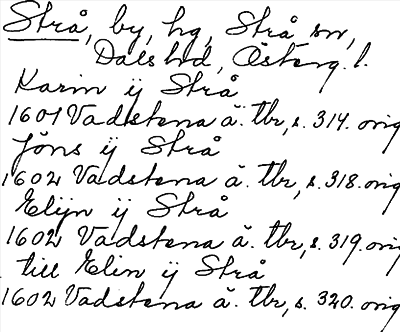 Strå, by, hg, Strå sn,
Dals hd, Österg. l.
Karin ÿ Strå
1601 Vadstena ä. Tbr, s. 314. orig
Jöns ÿ Strå
1602 Vadstena ä. Tbr, s. 318. orig
Elijn ÿ Strå
1602 Vadstena ä. Tbr, s. 319. orig
till Elin ÿ Strå
1602 Vadstena ä. Tbr, s. 320. orig